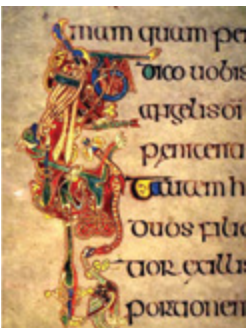 mam quam per
dico uobis
angelis di
penitenti
autem h
duos filio
tior exillis
portionem